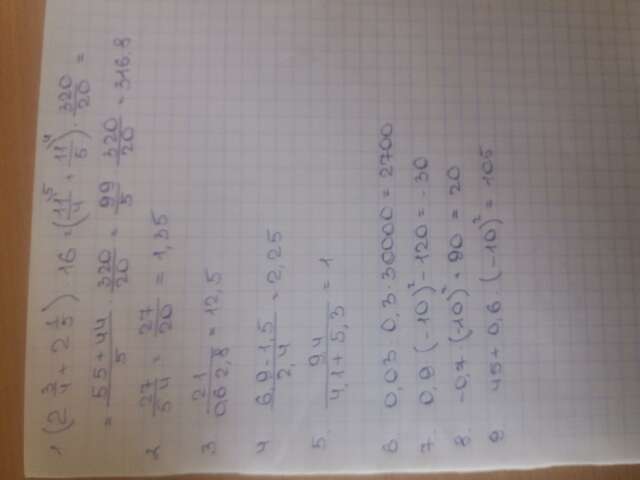 1 (2 3/4 + 2 1/5) · 16 = (11/4 \5 + 11/5 \4) · 320/20 =
= 55+44/5 · 320/20 = 99/5 · 320/20 = 316.8
2 27/54 : 27/20 = 1,35
3 21/0,6 2,8 = 12,5
4 6,9-1,5/2,4 = 2,25
5. 9,4/4,1+5,3 = 1
6. 0,03 · 0,3 · 30000 = 2700
7. 0,9 (-10)² - 120 = -30
8. -0,7 · (-10)² + 90 = 20
9 45 + 0,6 · (-10)² = 105